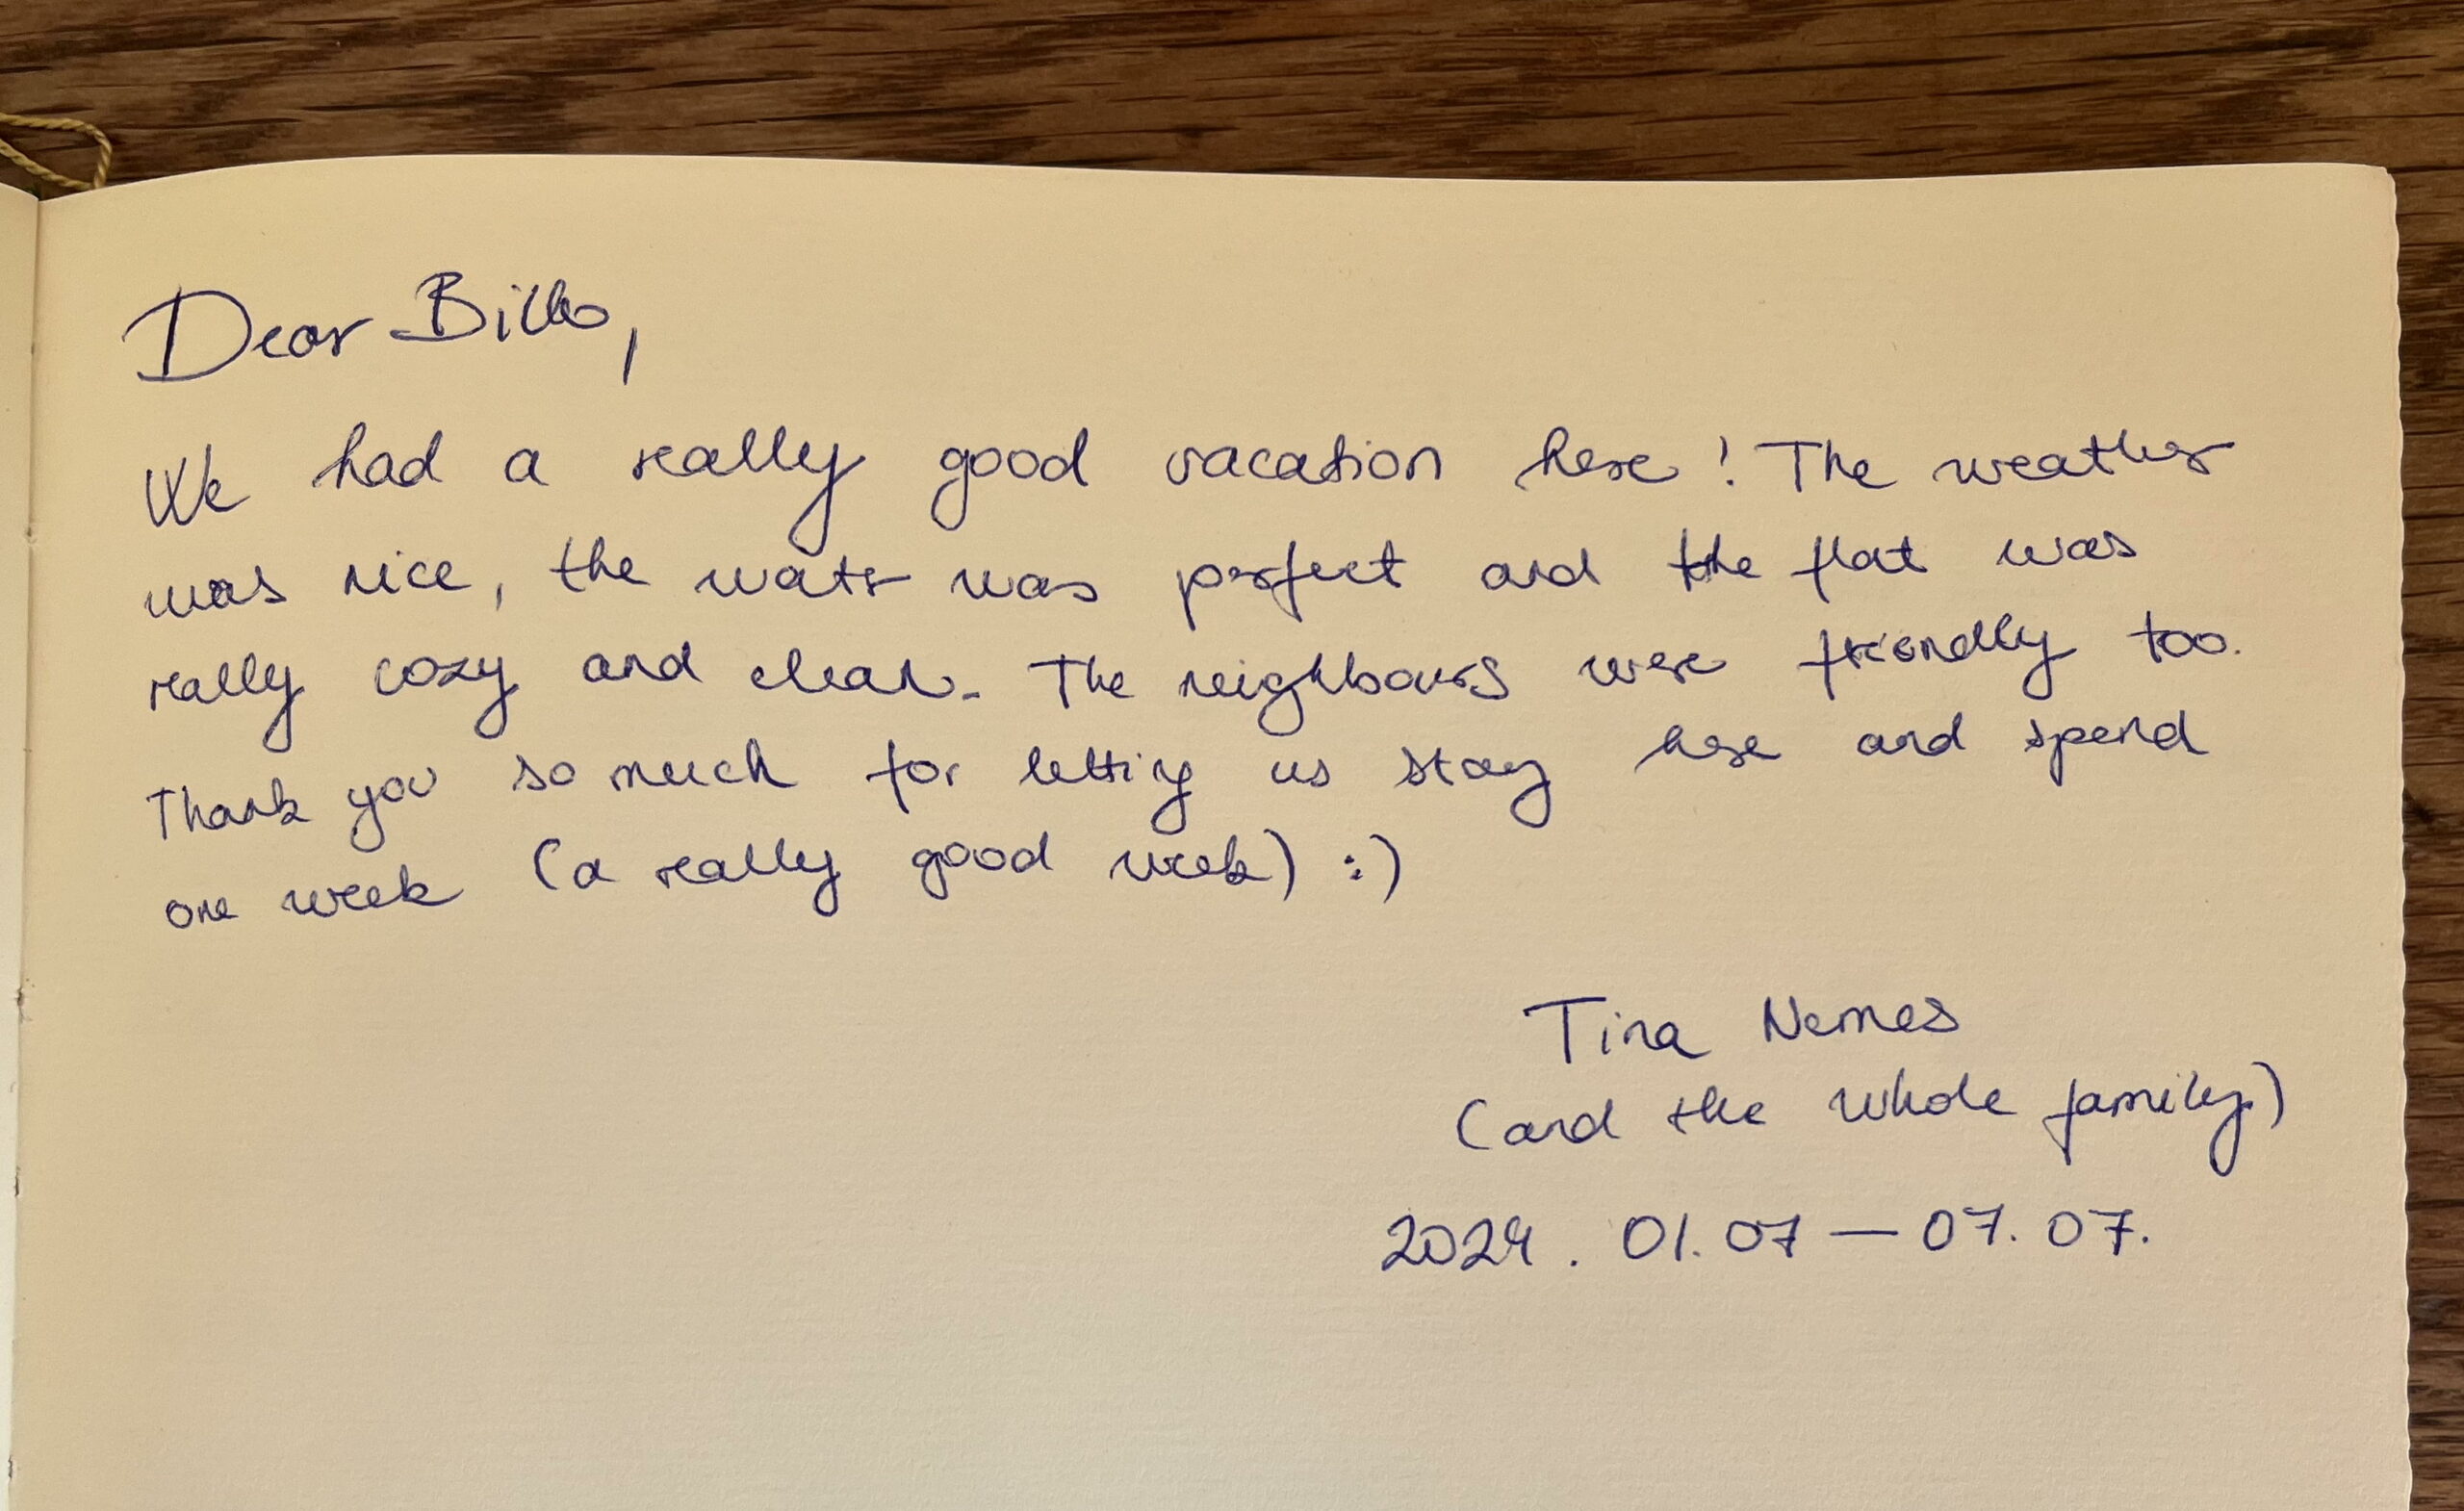 Dear
We had a really good vacation here! The weather
was nice, the water was perfect and the flat was
really cozy and clean. The neighbours were friendly too.
Thank you so much for letting us stay here and spend
one week (a really good week) :)
Tina Nemes
(and the whole family)
2024. 01.07 — 07.07.